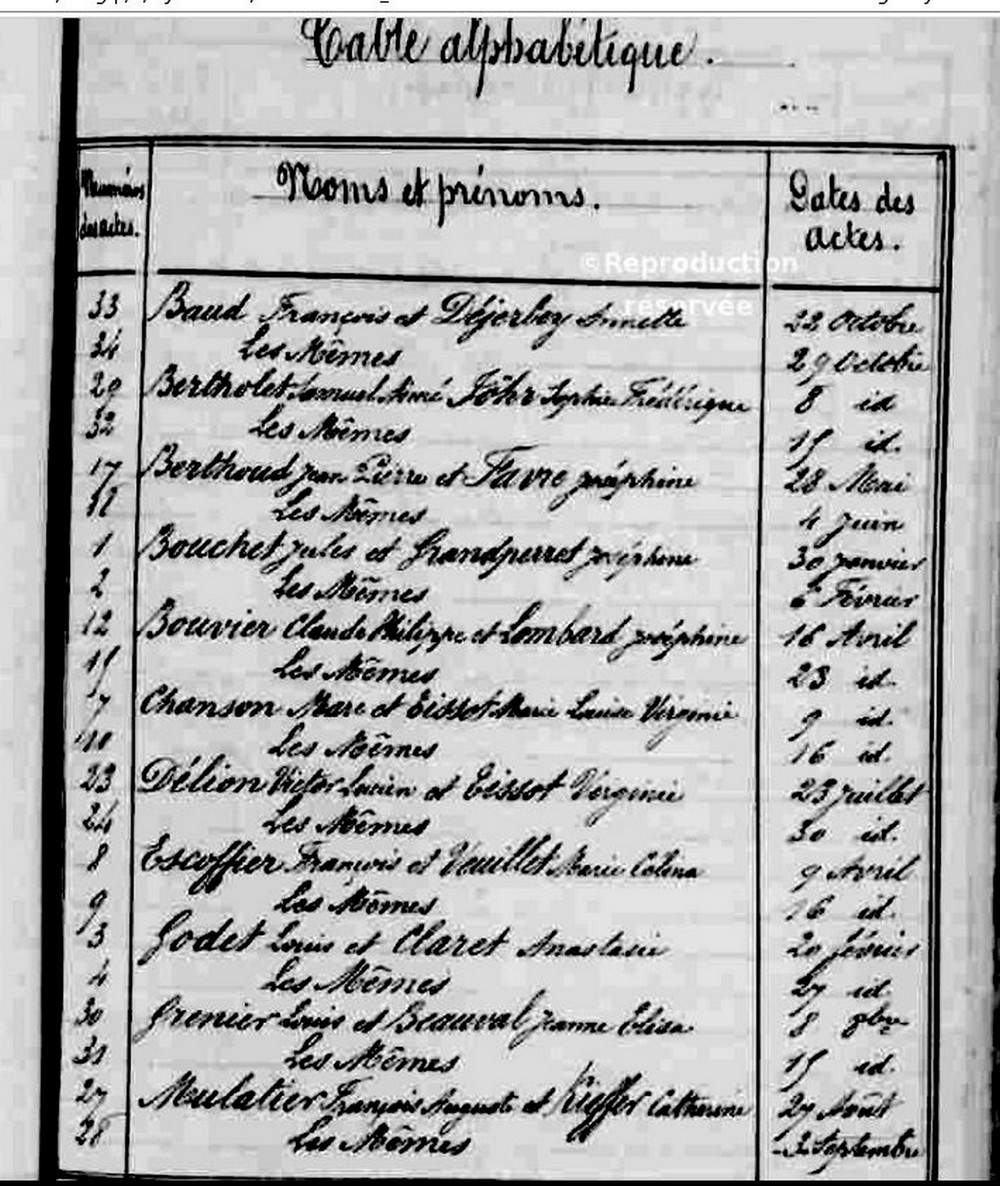 Table alphabétique.
Numéros des actes.
Noms et prénoms.
Dates des actes.
©Reproduction réservée
33 Baud François et Déjerbey Annette 22 Octobre
34 Les Mêmes 29 Octobre
29 Bertholet Samuel Aimé Föhr Sophie Frédérique 8 id
32 Les Mêmes 15 id.
17 Berthoud Jean Pierre et Favre Joséphine 28 Mai
18 Les Mêmes 4 Juin
1 Bouchet Jules et Grandperret Joséphine 30 Janvier
2 Les Mêmes 6 Février
12 Bouvier Claude Philippe et Lombard Joséphine 16 Avril
15 Les Mêmes 23 id.
7 Chanson Marc et Tissot Marie Louise Virginie 9 id.
10 Les Mêmes 16 id.
23 Délion Victor Lucien et Tissot Virginie 23 Juillet
24 Les Mêmes 30 id.
8 Escoffier François et Veuillet Marie Colina 9 Avril
9 Les Mêmes 16 id.
3 Godet Louis et Claret Anastasie 20 février
4 Les Mêmes 27 id
30 Grenier Louis et Beauval Jeanne Elisa 8 8bre
31 Les Mêmes 15 id.
27 Meulatier François Auguste et Kieffer Catherine 27 Août
28 Les Mêmes 3 Septembre